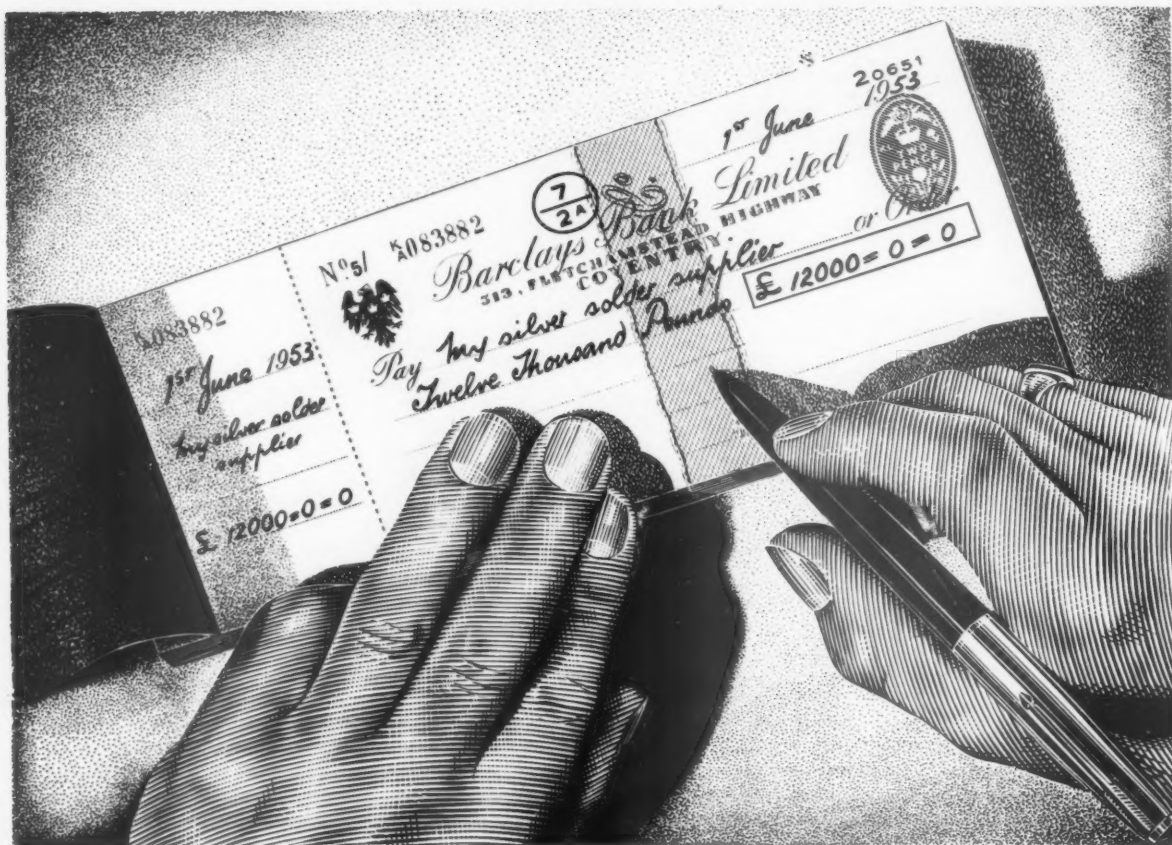 K/A083882
1ST June 1953
my silver solder
supplier
£ 12000=0=0
20651
1ST June 1953
No 5/ K/A083882
7/2A
Barclays Bank Limited
313, FLETCHAMSTEAD HIGHWAY
COVENTRY
TWO
PENCE
Pay my silver solder supplier or Order
Twelve Thousand Pounds
£ 12000=0=0